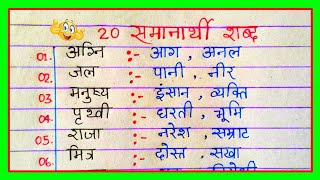 20 समानार्थी शब्द
01. अग्नि :- आग , अनल
02. जल :- पानी , नीर
03. मनुष्य :- इंसान , व्यक्ति
04. पृथ्वी :- धरती , भूमि
05. राजा :- नरेश , सम्राट
06. मित्र :- दोस्त , सखा